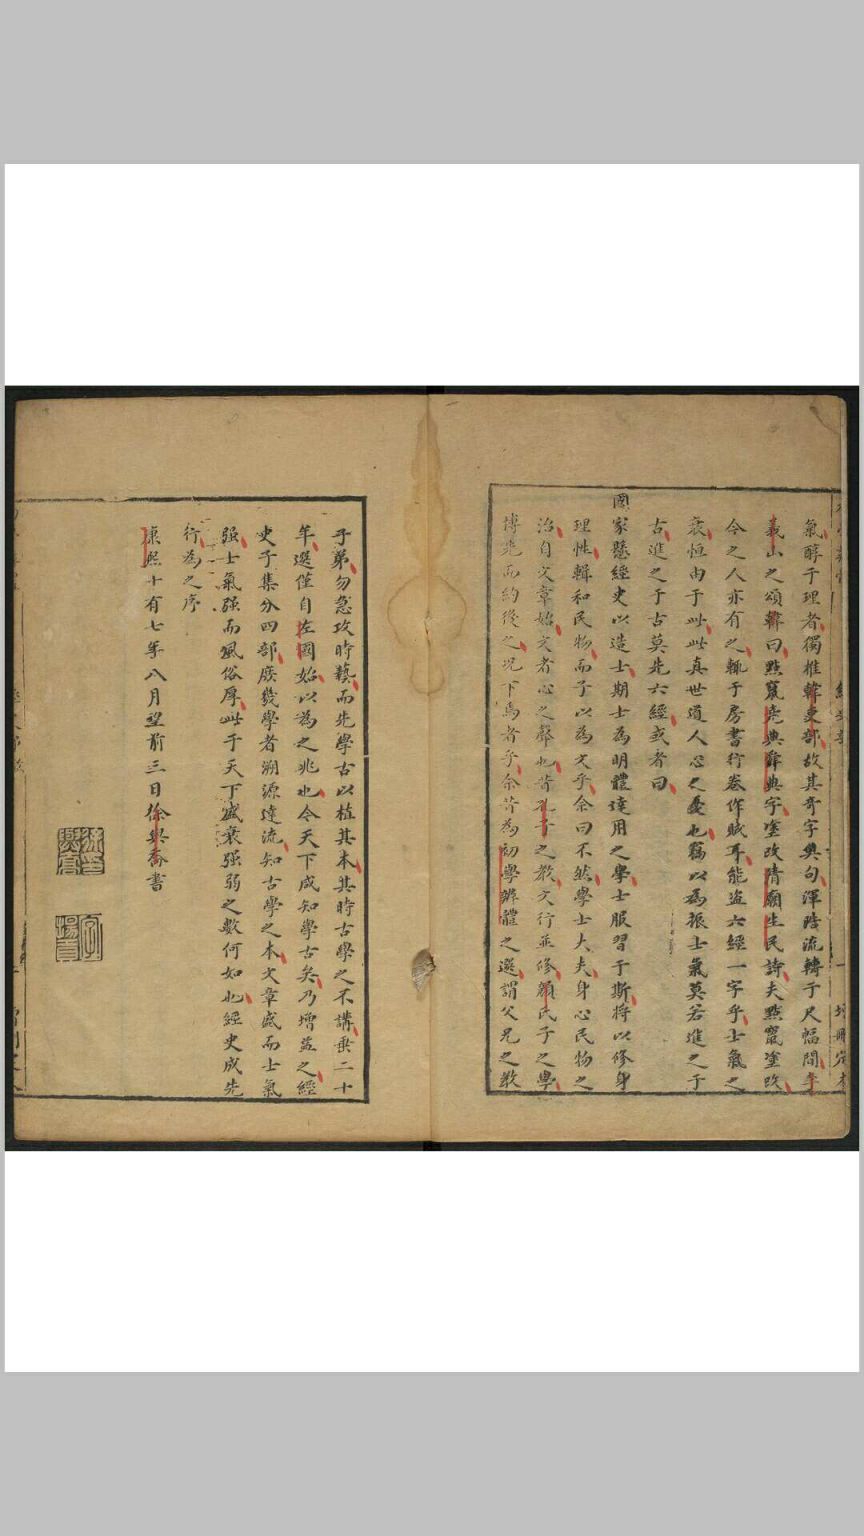 氣醇于理者獨推韓吏部故其奇字奥句渾陸流轉于尺幅間李
義山之頌韓曰點竄堯典舜典字塗改清廟生民詩夫點竄塗改
今之人亦有之輒于房書行卷作賊耳能盜六經一字乎士氣之
衰恒由于此此真世道人心之憂也竊以為振士氣莫若進之于
古進之于古莫先六經或者曰
國家懸經史以造士期士為明體達用之學士服習于斯將以修身
理性輯和民物而子以為文乎余曰不然學士大夫身心民物之
治自文章始文者心之聲也昔孔子之教文行並修顏氏子之學
博先而約後之況下焉者乎余昔為初學辨體之選謂父兄之教
子弟勿急攻時藝而先學古以植其本其時古學之不講垂二十
年選僅自左國始以為之兆也今天下咸知學古矣乃增益之經
史子集分四部庶幾學者溯源達流知古學之本文章盛而士氣
强士氣强而風俗厚此于天下盛衰强弱之數何如也經史成先
行為之序
康熙十有七年八月望前三日徐與喬書